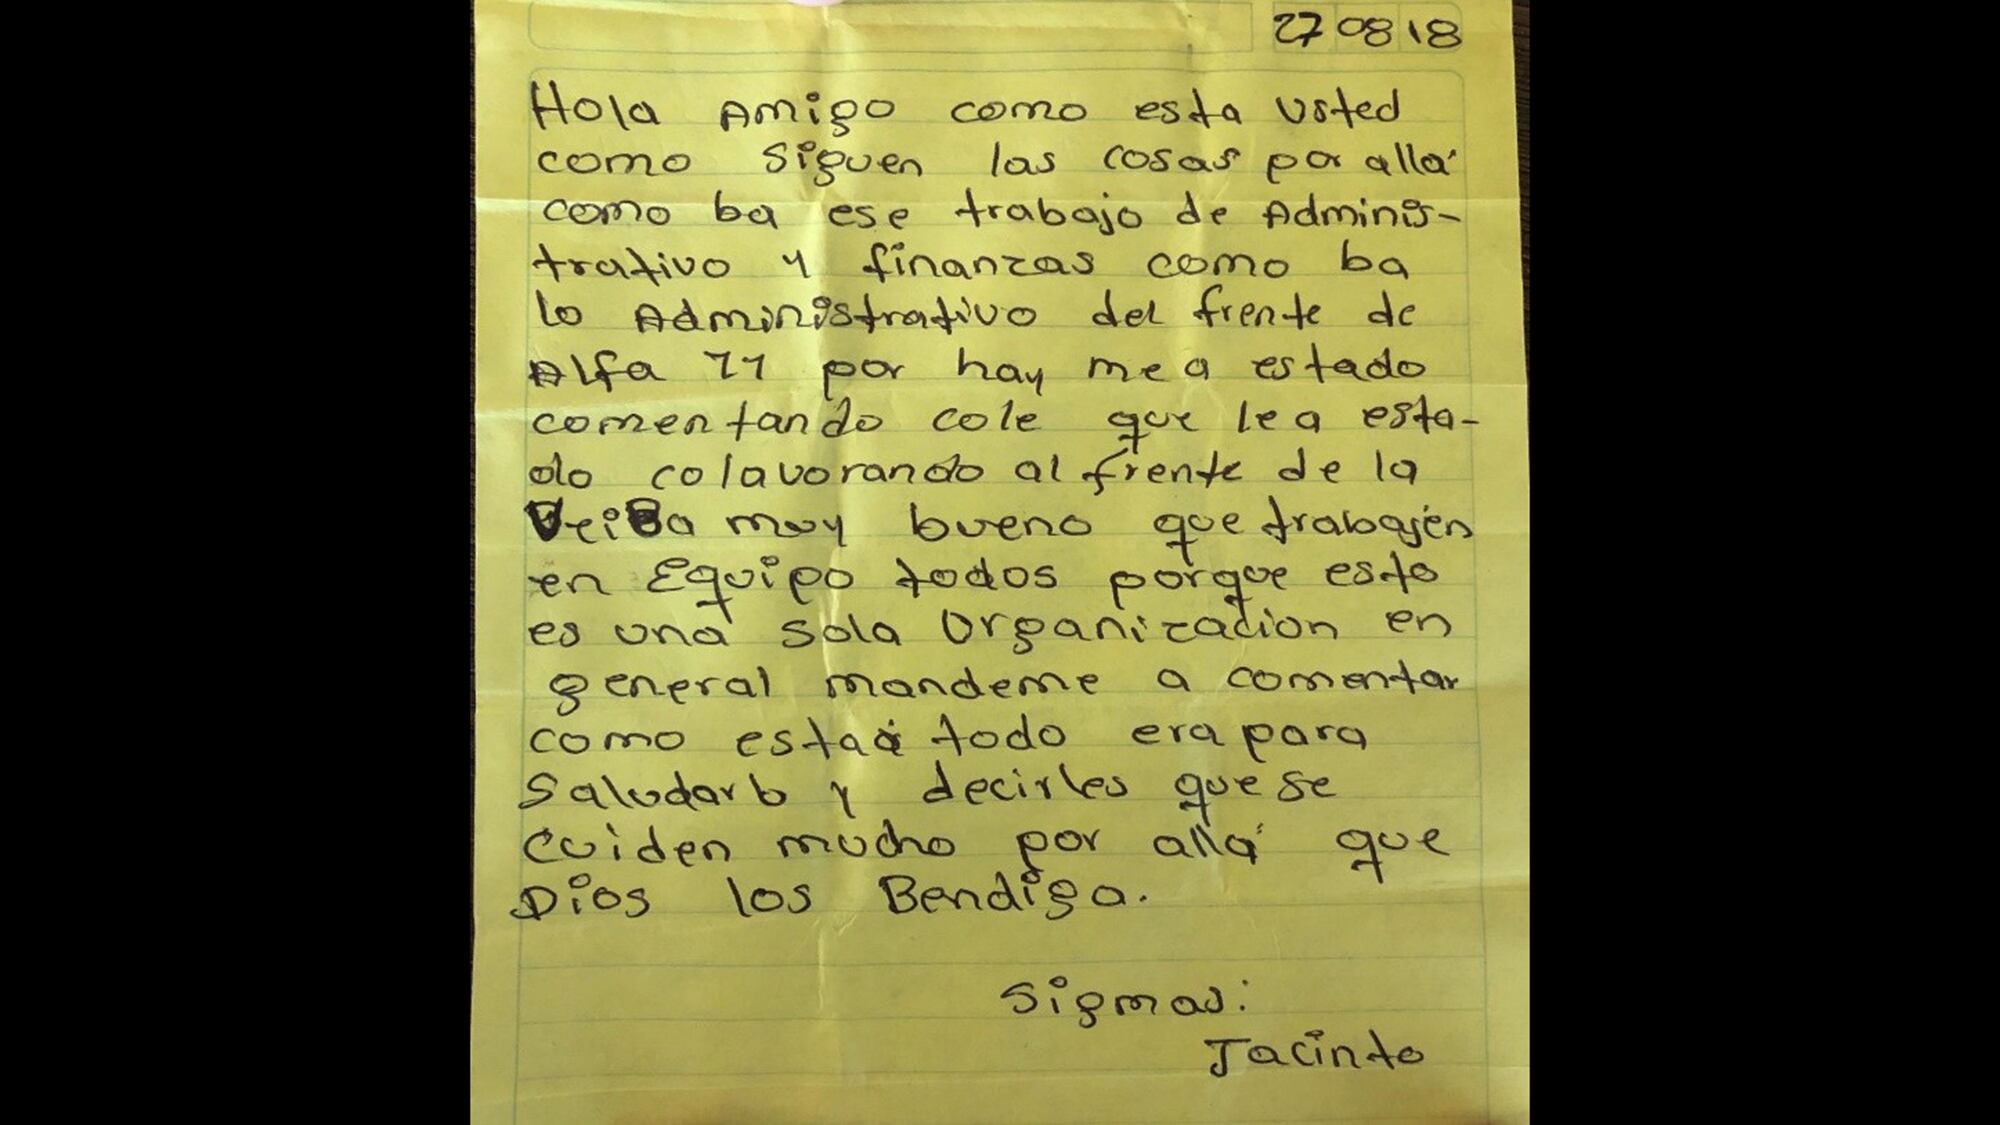 27 08 18
Hola Amigo como esta usted
como siguen las cosas por allá
como ba ese trabajo de Adminis-
trativo y finanzas como ba
lo Administrativo del frente de
Alfa 11 por hay me a estado
comentando cole que le a esta-
do colavorando al frente de la
muy bueno que trabajen
en Equipo todos porque esto
es una sola Organizacion en
general mandeme a comentar
como esta todo era para
Saludarlo y decirles que se
cuiden mucho por allá que
Dios los Bendiga.
Sigmas:
Jacinto